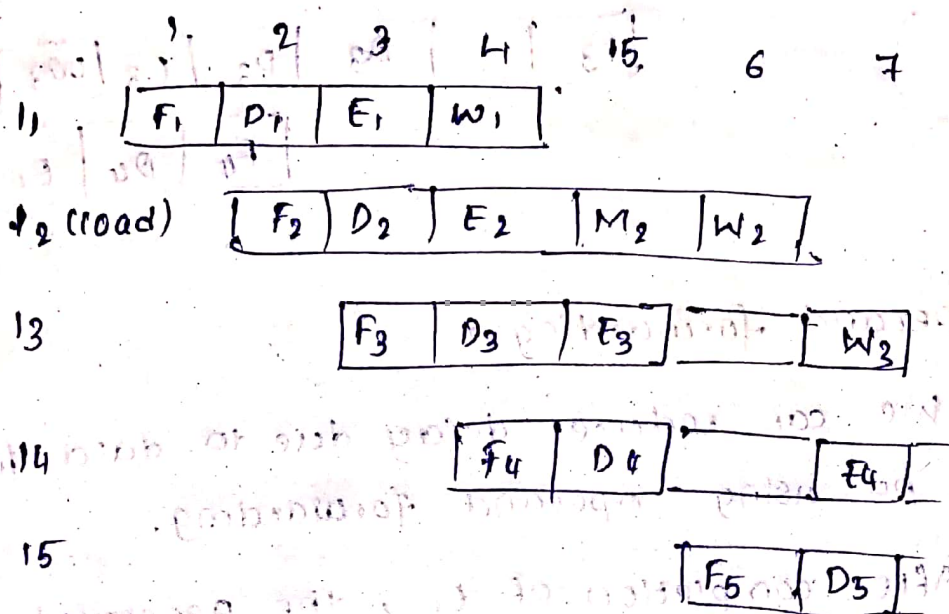 1 2 3 4 5 6 7
I1 F1 D1 E1 W1
I2 (load) F2 D2 E2 M2 W2
I3 F3 D3 E3 W3
I4 F4 D4 E4
I5 F5 D5